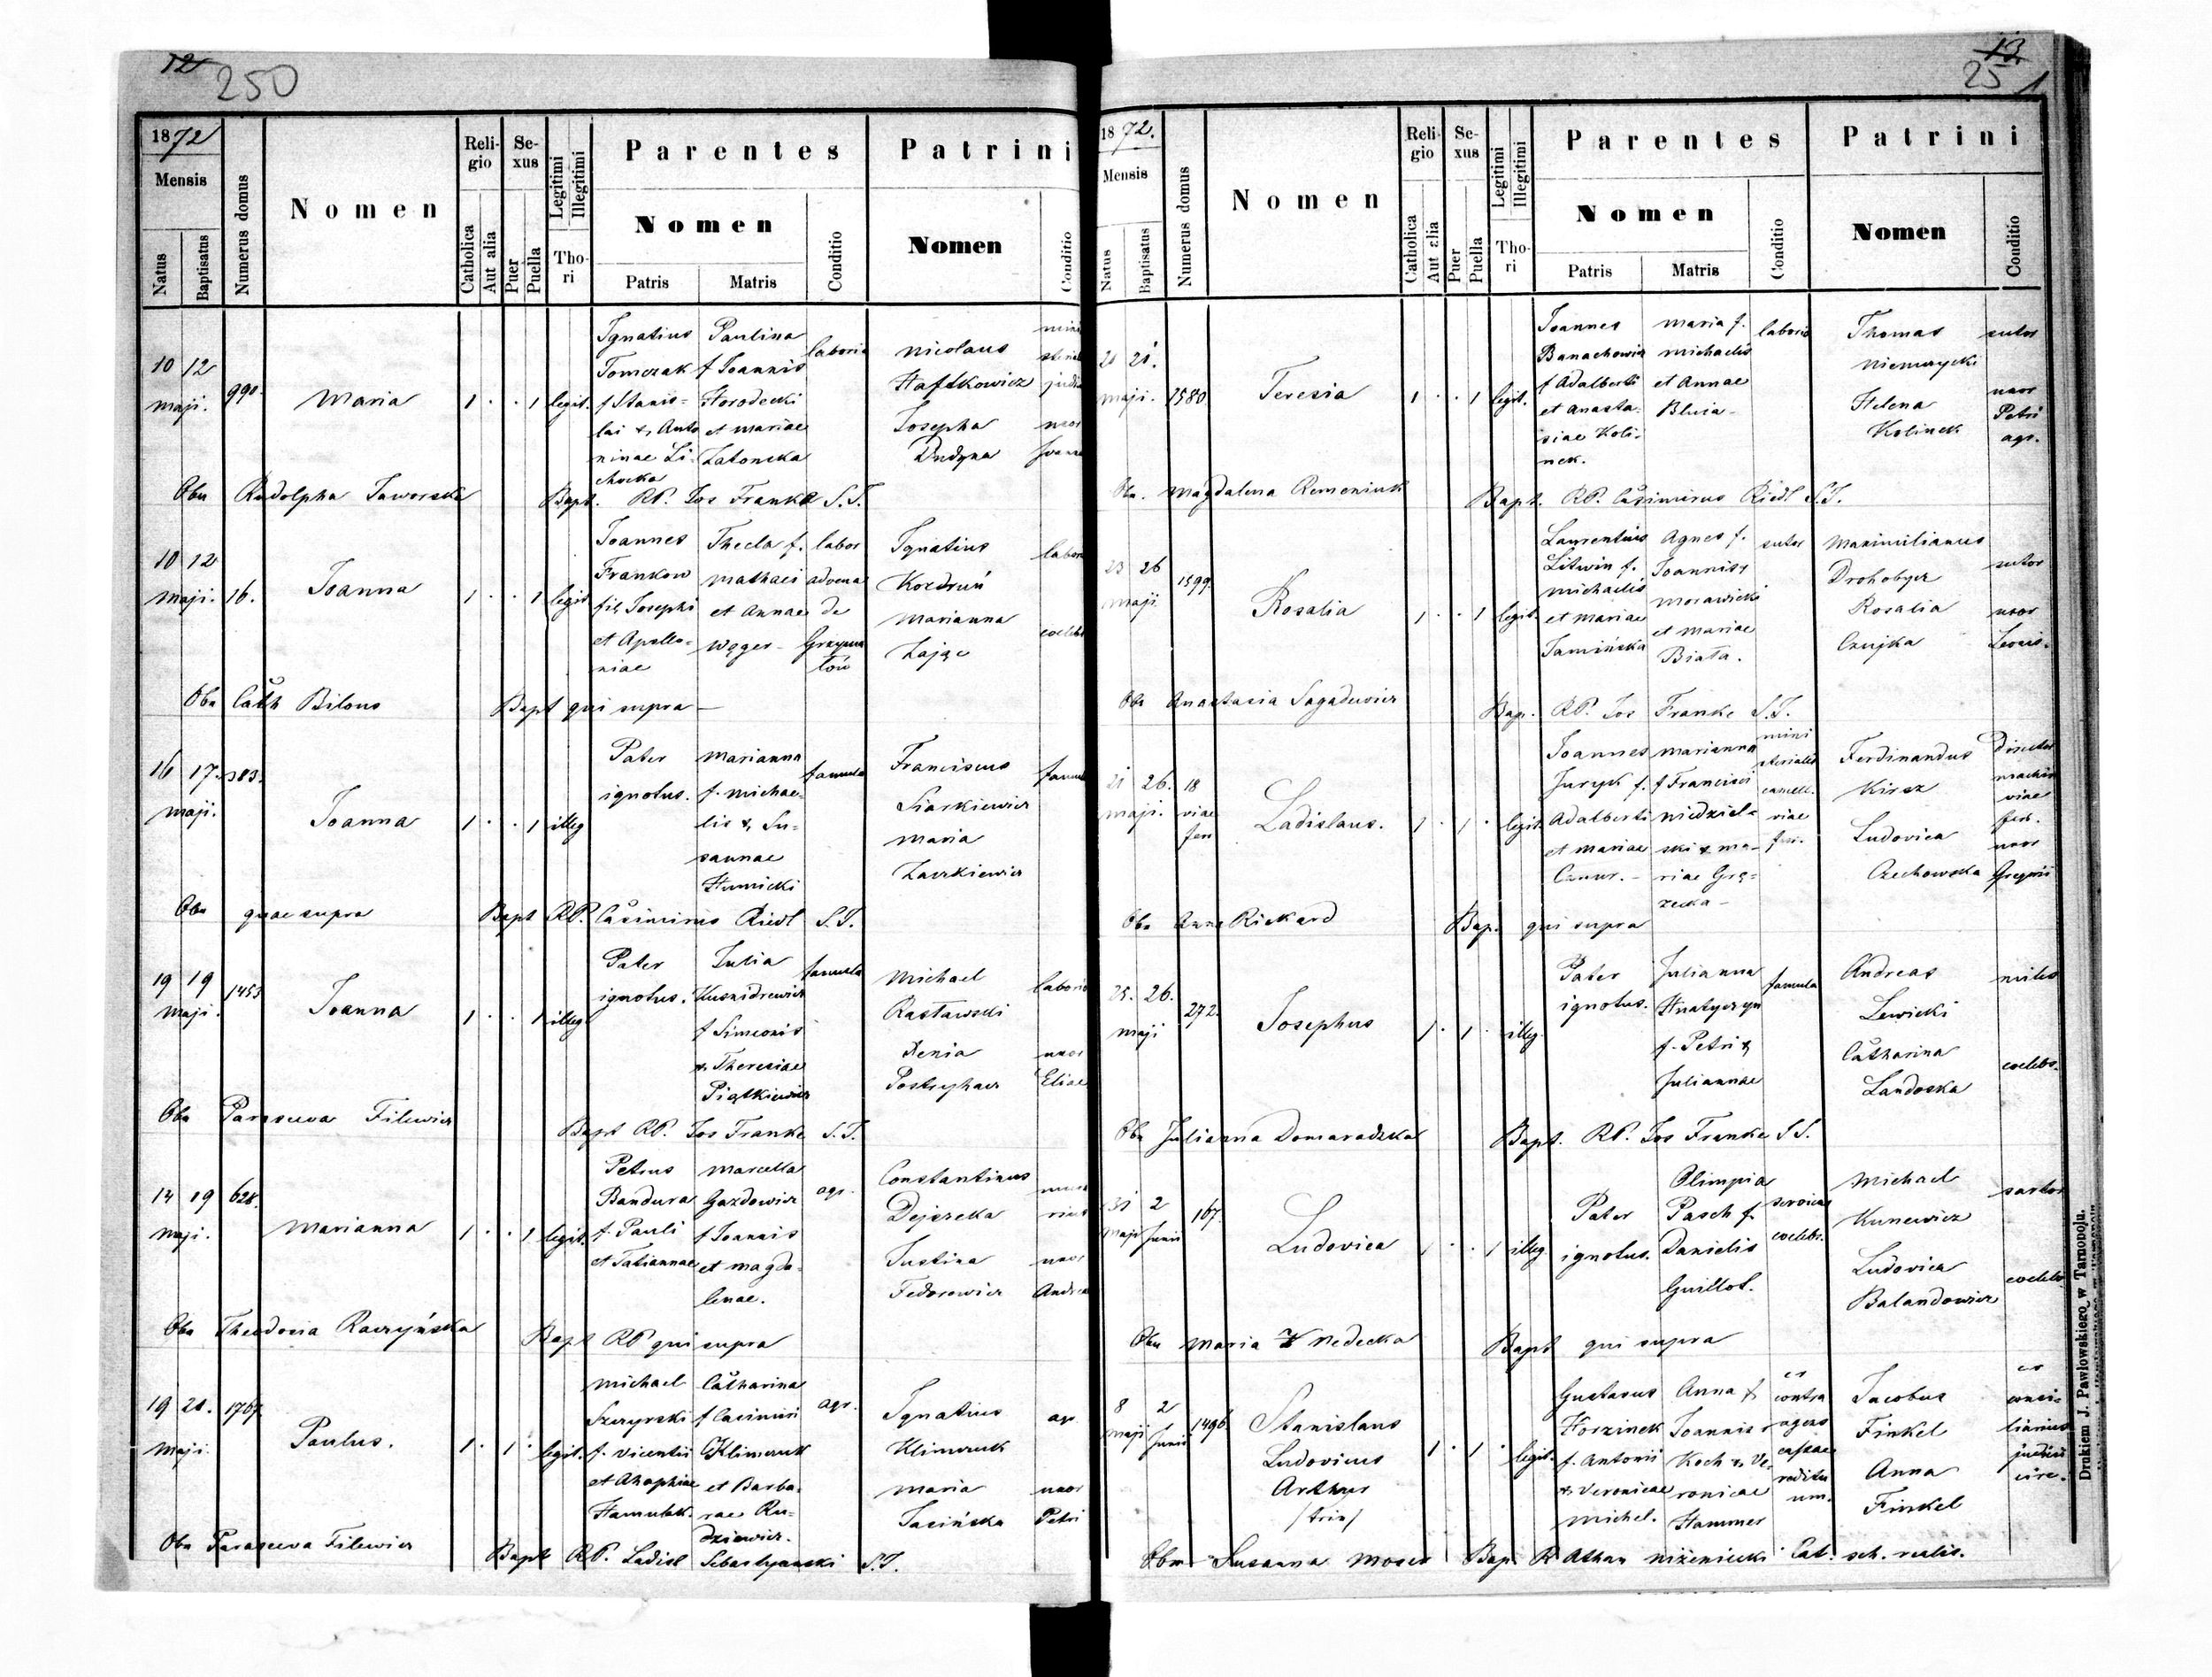 12
250
1872
Mensis
Natus
Baptisatus
Numerus domus
Nomen
Religio
Catholica
Aut alia
Sexus
Puer
Puella
Legitimi
Illegitimi
Thori
Parentes
Nomen
Patris
Matris
Conditio
Patrini
Nomen
Conditio
10 12 maji. 990. Maria 1 . . 1 legit.
Ignatius
Tomczak
f Stanis-
lai & Anto
ninae Li-
chocka
Paulina
f Joannis
Horodecki
et Mariae
Zatoncka
laborio
Nicolaus
Haftkowicz
Josepha
Dudyna
Obs Rudolpha Jaworska Bapt. RP. Jos Franke S.J.
10 12 maji. 16. Joanna 1 . . 1 legit
Joannes
Frankow
fil, Josephi
et Apollo-
niae
Thecla f.
Mathaei
et Annae
Węger -
labor
advena
de
Grzyma
łów
Ignatius
Kozdruń
Marianna
Zając
labor
coelebs
Obs Cath Bilous Bapt qui supra -
16 17. maji. 383. Joanna 1 . . 1 illeg
Pater
ignotus.
Marianna
f. Michae-
lis & Su-
sannae
Humicki
famula
Franciscus
Siarkiewicz
Maria
Zarkiewicz
Obs quae supra Bapt RP. Casimirus Riedl S.J.
19 19 maji. 1453 Joanna 1 . . 1 illeg.
Pater
ignotus.
Julia
Kusnidrewicz
f Simeonis
& Theresiae
Piątkiewicz
famula
Michael
Rastawski
Xenia
Postryhacz
laborio
uxor
Eliae
Obs Parasceva Filewicz Bapt RP. Jos Franke S.J.
14 19 maji. 628. Marianna 1 . . 1 legit.
Petrus
Bandura
f. Pauli
et Tatiannae
Marcella
Gazdowicz
f Joannis
et Magda-
lenae.
agr.
Constantinus
Dejczeka
Justina
Fedorowicz
uxor
Andrea
Obs Theodosia Raczyńska Bapt RP qui supra
19 21. maji. 1767 Paulus. 1 . 1 . legit.
Michael
Szczyrski
f. Vicentii
et Ahaphiae
Hamulak.
Catharina
f Casimiri
Klimczuk
et Barba-
rae Ru-
dziewicz.
agr.
Ignatius
Klimczuk
Maria
Jasińska
agr
uxor
Petri
Obs Parasceva Filewicz Bapt RP. Ladisl Sebastyanski S.J.
13.
251
1872.
Mensis
Natus
Baptisatus
Numerus domus
Nomen
Religio
Catholica
Aut alia
Sexus
Puer
Puella
Legitimi
Illegitimi
Thori
Parentes
Nomen
Patris
Matris
Conditio
Patrini
Nomen
Conditio
21 21. maji. 1580 Teresia 1 . . 1 legit.
Joannes
Banachowicz
f Adalberti
et Anasta-
siae Koli-
nek.
Maria f.
Michaelis
et Annae
laborio
Thomas
Niemirycki
Helena
Kolinek
sutor
uxor
Petri
agr.
Obs. Magdalena Remeniuk Bapt. RP. Casimirus Riedl S.J.
23 26 maji 1599. Rosalia 1 . . 1 legit.
Laurentius
Litwin f.
Michaelis
et Mariae
Jamińska
Agnes f.
Joannis
Morawicki
et Mariae
Biała.
sutor
Maximilianus
Drohobycz
Rosalia
Czujka
sutor
uxor
Obs Anastasia Sagadewicz Bap. RP. Jos Franke S.J.
21 26. maji. 18 viae fer Ladislaus. 1 . 1 . legit.
Joannes
Juryk f.
Adalberti
et Mariae
Marianna
f Francisci
Niedziel-
ski & Ma-
riae Grą-
zecka -
mini
sterialis
cancell.
viae
fer.
Ferdinandus
Kirsz
Ludovica
Czechowska
Director
machin
viae
fer.
uxor
Gregorii
Obs Anna Rickard Bap. qui supra
25. 26. maji 272. Josephus 1 . 1 . illeg.
Pater
ignotus.
Julianna
Hnatyczyn
f. Petri &
Juliannae
famula
Andreas
Lewicki
Catharina
Landoska
miles
coelebs.
Obs Julianna Domaradzka Bapt. RP. Jos Franke S.J.
31 2 maji Junii 167. Ludovica 1 . . 1 illeg
Pater
ignotus.
Olimpia
Pasch f.
Danielis
Guillot.
coelebs.
Michael
Kunewicz
Ludovica
Balandowicz
sartor
coelebs
Obs Maria Nedecka Bapt qui supra
8 2 maji Junii 1496 Stanislaus
Ludovicus
Arthur
/trin/
1 . 1 . legit.
Gustavus
Horzinek
f. Antonii
& Veronicae
Michel.
Anna f.
Joannis
Koch & Ve-
ronicae
Hammer
cs
contra
agens
cassae
reditu
um.
Jacobus
Finkel
Anna
Finkel
cs
consi-
liarius
judicii
circ.
Obs Susanna Moses Bap. R Athan Niżeniecki Cat. sch. realis.
Drukiem J. Pawłowskiego w Tarnopolu.